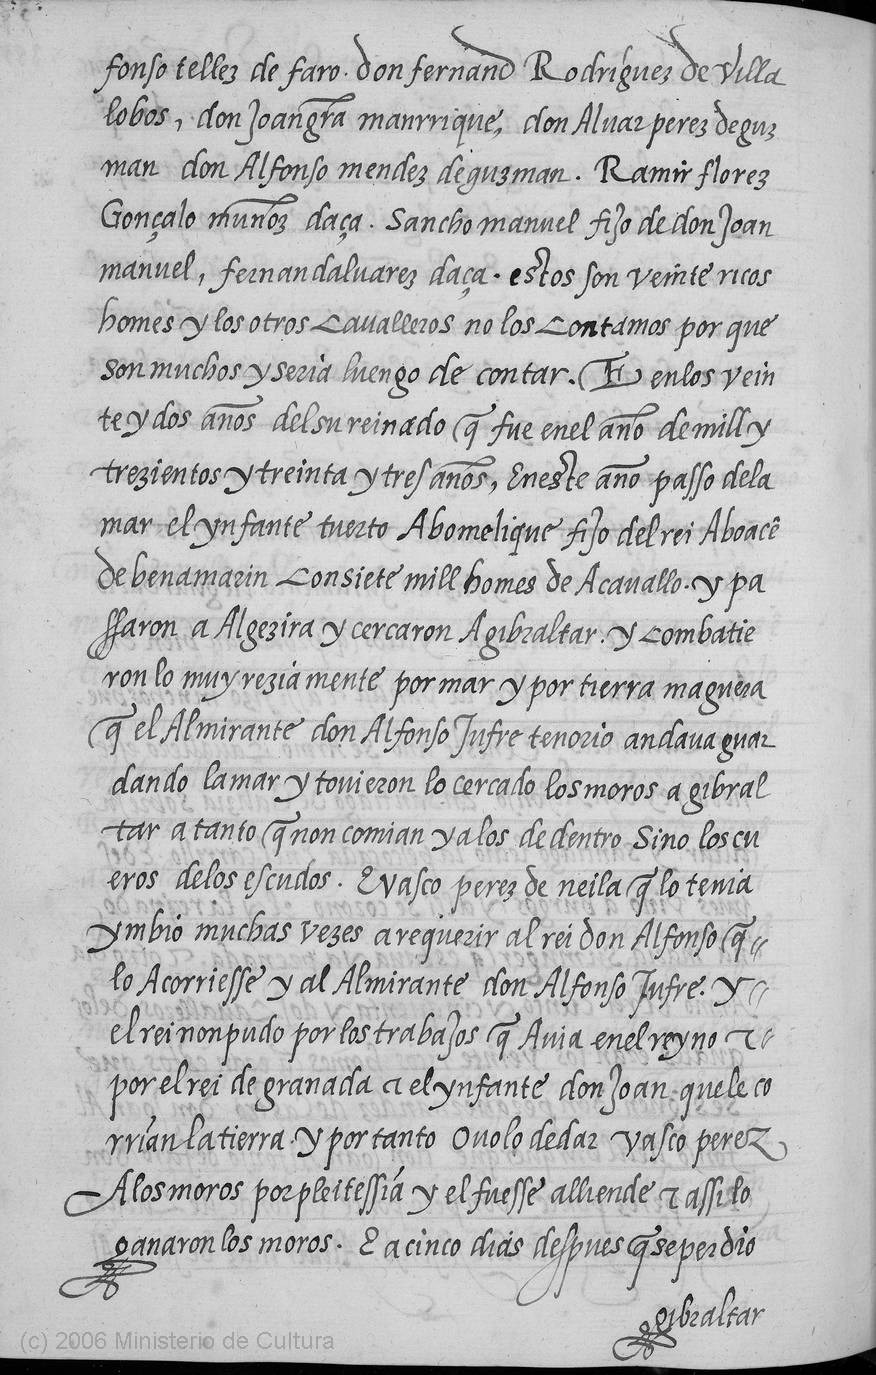 fonso tellez de faro. don fernand Rodríguez de Villa
lobos, don Joan gr̃a manrrique, don Aluar perez de guz
man don Alfonso mendez de guzman. Ramir florez
Gonçalo muñoz daça. Sancho manuel fijo de don Joan
manuel, fernandaluarez daça. estos son veinte ricos
homes y los otros Caualleros no los Contamos por que
son muchos y seria luengo de contar. E en los vein
te y dos años del su reinado q̃ fue en el año de mill y
trezientos y treinta y tres años, En este año passo de la
mar el ynfante tuerto Abomelique fijo del rei Aboacẽ
de benamarin Con siete mill homes de Acauallo. y pa
ssaron a Algezira y cercaron A gibraltar. y Combatie
ron lo muy reziamente por mar y por tierra maguera
q̃ el Almirante don Alfonso Jufre tenorio andaua guar
dando la mar y tovieron lo cercado los moros a gibral
tar a tanto q̃ non comian ya los de dentro Sino los cu
eros de los escudos. E vasco perez de neila q̃ lo tenia
ymbió muchas vezes a requerir al rei don Alfonso q̃
lo Acorriesse y al Almirante don Alfonso Jufre. y
el rei non pudo por los trabajos q̃ Auia en el reyno τ
por el rei de granada τ el ynfante don Joan que le co
rrían la tierra. y por tanto Ovolo de dar vasco perez
A los moros por pleitessiá y el fuesse alliende τ assi lo
ganaron los moros. E a cinco dias despues q̃ se perdio
gibraltar
(c) 2006 Ministerio de Cultura